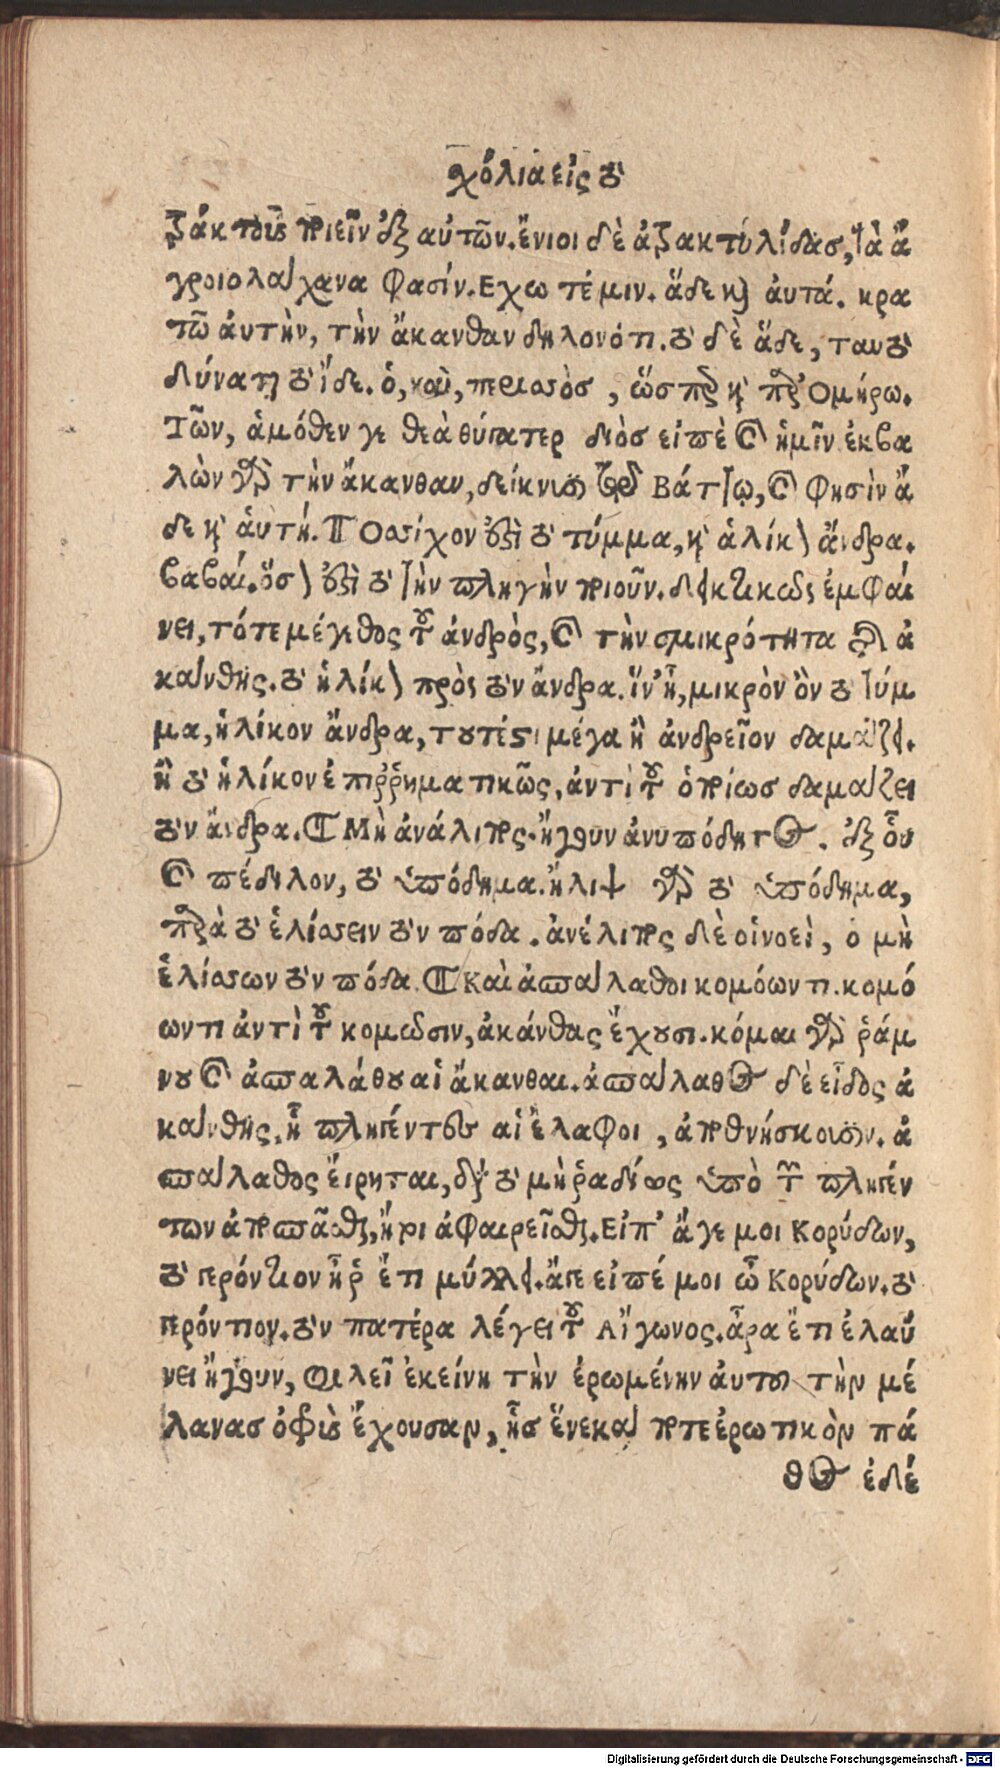 χόλια εἰς τὸ
ξάκτους ποιεῖν ἐξ αὐτῶν. ἔνιοι δὲ ἀξακτυλίδας, τὰ ἄ
γριολάχανα φασίν. Εχω τέ μιν. ἅδε καὶ ἀυτά. κρα
τῶ ἀυτὴν, τὴν ἄκανθαν δηλονότι. τὸ δὲ ἅδε, ταυτὸ
δύναται τὸ ἴδε. ὁ, καὶ, περισσὸς, ὥσπερ καὶ παρ Ομήρω.
Τῶν, ἁμόθεν γε θεὰ θύγατερ διὸς εἰπὲ καὶ ἡμῖν ἐκβα
λὼν γὰρ τὴν ἄκανθαν, δείκνυσι τῷ Βάττῳ, καὶ φησὶν ἅ
δε καὶ ἁυτή. Οσσίχον ἐστὶ τὸ τύμμα, καὶ ἁλίκον ἄνδρα.
βαβαί. ὅσον ἐστὶ τὸ τὴν πληγὴν ποιοῦν. δεικτικῶς ἐμφαί
νει, τότε μέγεθος τοῦ ἀνδρὸς, καὶ τὴν σμικρότητα τῆς ἀ
κάνθης. τὸ ἡλίκον πρὸς τὸν ἄνδρα. ἵν' ᾖ, μικρὸν ὂν τὸ τύμ
μα, ἡλίκον ἄνδρα, τουτέστι μέγα ἢ ἀνδρεῖον δαμάζει.
ἢ τὸ ἡλίκον ἐπιῤῥηματικῶς, ἀντὶ τοῦ ὁποίως δαμάζει
τὸν ἄνδρα. Μὴ ἀνάλιπος. ἤγουν ἀνυπόδητος. ἐξ οὗ
καὶ πέδιλον, τὸ ὑπόδημα. ἤλιψ γὰρ τὸ ὑπόδημα,
παρὰ τὸ ἑλίσσειν τὸν πόδα. ἀνέλιπος δὲ οἱνοεὶ, ο μὴ
ἑλίσσων τὸν πόδα. Καὶ ἀσπάλαθοι κομόωντι. κομό
ωντι ἀντὶ τοῦ κομῶσιν, ἀκάνθας ἔχουσι. κόμαι γὰρ ῥάμ
νου καὶ ἀσπαλάθου αἱ ἄκανθαι. ἀσπάλαθος δὲ εἶδος ἀ
κάνθης, ᾗ πληγέντες αἱ ἔλαφοι, ἀποθνήσκουσιν. ἀ
σπάλαθος ἔιρηται, διὰ τὸ μὴ ῥαδίως ὑπὸ τῶν πληγέν
των ἀποσπᾶσθαι, ἤγουν ἀφαιρεῖσθαι. Εἰπ' ἄγε μοι Κορύδων,
τὸ γερόντιον ἦρ ἔτι μύλλει. ἄγε εἰπέ μοι ὦ Κορύδων. τὸ
γερόντιον. τὸν πατέρα λέγει τοῦ Αἴγωνος. ἆρα ἔτι ἐλαύ
νει ἤγουν, φιλεῖ ἐκείνη τὴν ἐρωμένην ἀυτοῦ τὴν μέ
λανας ὀφρῦς ἔχουσαν, ἧς ἕνεκα ποτε ἐρωτικὸν πά
θος ἐδέ
Digitalisierung gefördert durch die Deutsche Forschungsgemeinschaft - DFG